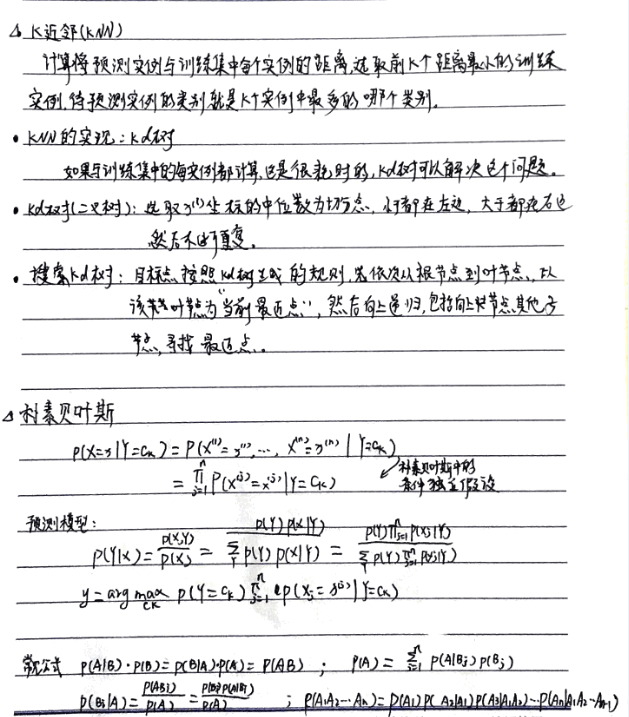 △ K近邻(KNN)
计算待预测实例与训练集中每个实例的距离,选取前K个距离最小的训练
实例,待预测实例的类别就是K个实例中最多的哪个类别。
• KNN的实现:kd树
如果与训练集中的每实例都计算,这是很耗时的,kd树可以解决这个问题。
• kd树(二叉树):选取x⁽¹⁾坐标的中位数为切分点,小于都在左边,大于都在右边
然后不断重复。
• 搜索kd树:目标点按照kd树生成的规则,依次从根节点到叶节点,以
该叶节点为"当前最近点",然后向上递归,包括向上父节点其他子
节点,寻找最近点。
△ 朴素贝叶斯
P(X=x|Y=Cₖ)=P(X⁽¹⁾=x⁽¹⁾,…, X⁽ⁿ⁾=x⁽ⁿ⁾|Y=Cₖ)
= ∏ⁿⱼ₌₁ P(X⁽ʲ⁾=x⁽ʲ⁾|Y=Cₖ) ↙朴素贝叶斯中的
条件独立假设
预测模型:
P(Y|X)= P(X,Y)/P(X) = P(Y)P(X|Y)/∑_Y P(Y)P(X|Y) = P(Y)∏ⁿⱼ₌₁P(Xj|Y)/∑_Y P(Y)∏ⁿⱼ₌₁P(Xj|Y)
y=arg max_{Cₖ} P(Y=Cₖ)∏ⁿⱼ₌₁ P(Xj=x⁽ʲ⁾|Y=Cₖ)
常见公式 P(A|B)·P(B)=P(B|A)·P(A)=P(AB) ; P(A)= ∑ⁿⱼ₌₁ P(A|Bj)P(Bj)
P(Bi|A)= P(ABi)/P(A) = P(Bi)P(A|Bi)/P(A) ; P(A₁A₂…Aₙ)=P(A₁)P(A₂|A₁)P(A₃|A₁A₂)…P(Aₙ|A₁A₂…Aₙ₋₁)